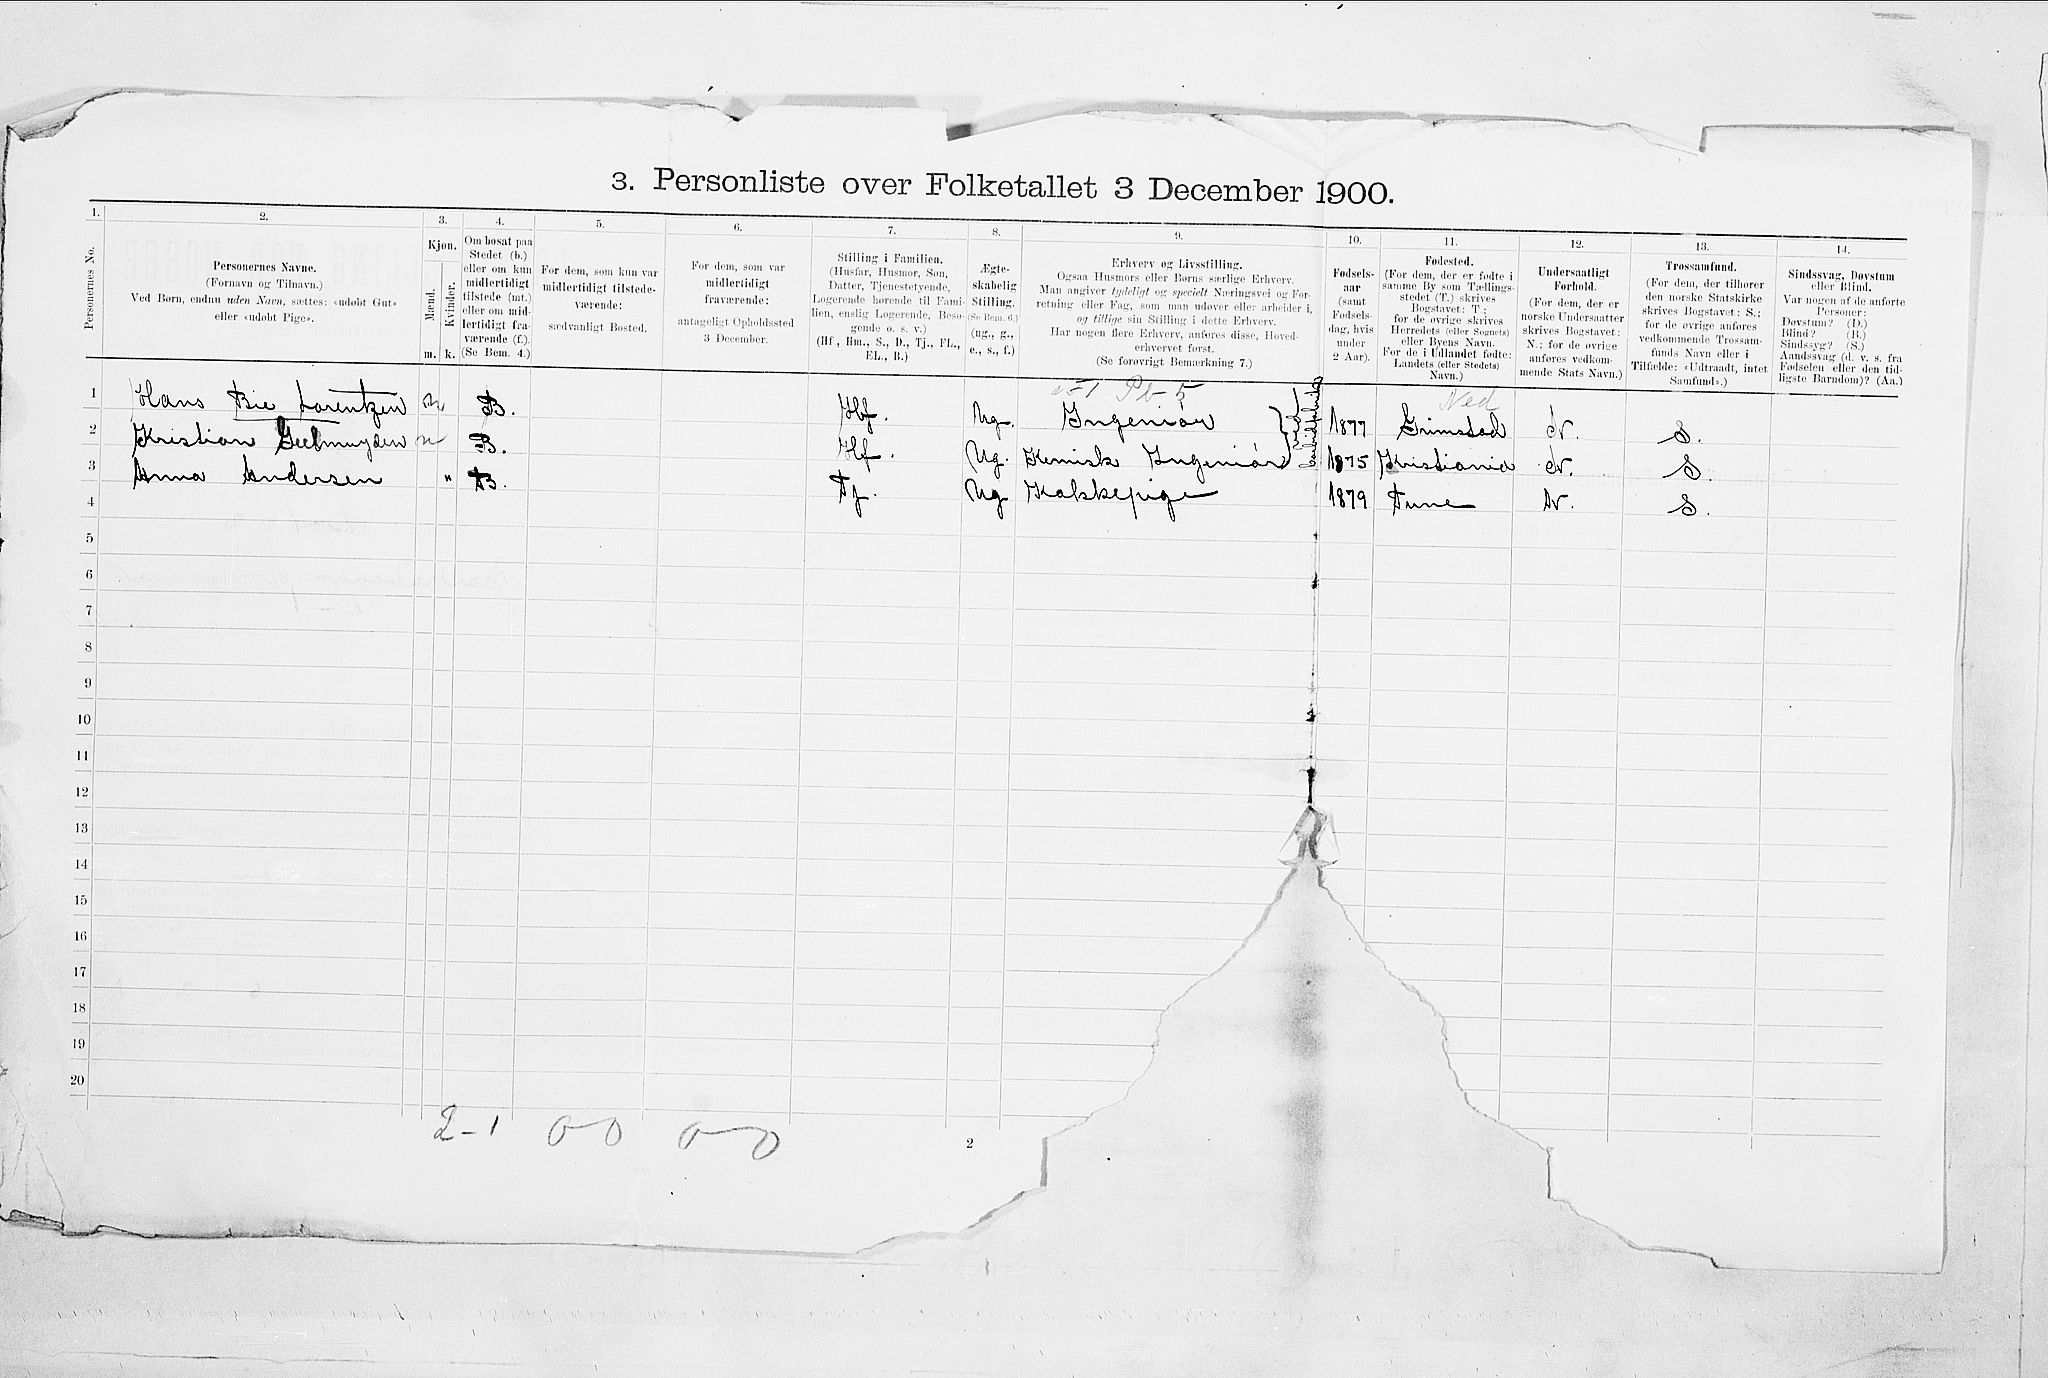 3. Personliste over Folketallet 3 December 1900.
1. 2. 3. 4. 5. 6. 7. 8. 9. 10. 11. 12. 13. 14.
Personernes No.
Personernes Navne.
(Fornavn og Tilnavn.)
Ved Børn, endnu uden Navn, sættes: «udøbt Gut»
eller «udøbt Pige».
Kjøn.
Mænd.
Kvinder.
m. k.
Om bosat paa
Stedet (b.)
eller om kun
midlertidigt
tilstede (mt.)
eller om mid-
lertidigt fra-
værende (f.).
(Se Bem. 4.)
For dem, som kun var
midlertidigt tilstede-
værende:
sædvanligt Bosted.
For dem, som var
midlertidigt
fraværende:
antageligt Opholdssted
3 December.
Stilling i Familien.
(Husfar, Husmor, Søn,
Datter, Tjenestetyende,
Logerende hørende til Fami-
lien, enslig Logerende, Besø-
gende o. s. v.)
(Hf., Hm., S., D., Tj., FL.,
EL., B.)
Ægte-
skabelig
Stilling.
(Se Bem. 6.)
(ug., g.,
e., s., f.)
Erhverv og Livsstilling.
Ogsaa Husmors eller Børns særlige Erhverv.
Man angiver tydeligt og specielt Næringsvei og For-
retning eller Fag, som man udøver eller arbeider i,
og tillige sin Stilling i dette Erhverv.
Har nogen flere Erhverv, anføres disse, Hoved-
erhvervet først.
(Se forøvrigt Bemærkning 7.)
Fødsels-
aar
(samt
Fødsels-
dag, hvis
under
2 Aar).
Fødested.
(For dem, der er fødte i
samme By som Tællings-
stedet (T.) skrives
Bogstavet: T.;
for de øvrige skrives
Herredets (eller Sognets)
eller Byens Navn.
For de i Udlandet fødte:
Landets (eller Stedets)
Navn.)
Undersaatligt
Forhold.
(For dem, der er
norske Undersaatter
skrives Bogstavet:
N.; for de øvrige
anføres vedkom-
mende Stats Navn.)
Trossamfund.
(For dem, der tilhører
den norske Statskirke
skrives Bogstavet: S.;
for de øvrige anføres
vedkommende Trossam-
funds Navn eller i
Tilfælde: «Udtraadt, intet
Samfund».)
Sindssvag, Døvstum
eller Blind.
Var nogen af de anførte
Personer:
Døvstum? (D.)
Blind? (B.)
Sindssyg? (S.)
Aandssvag (d. v. s. fra
Fødselen eller den tid-
ligste Barndom)? (Aa.)
Pb 5 Ned
1 Hans Bie Lorentzen m B. Hf. Ug. Ingeniør 1877 Grimstad N. S.
2 Kristian Geelmuyden m B. Hf. Ug. Kemisk Ingeniør 1875 Kristiania N. S.
ved
3 Anna Andersen " B. Tj. Ug Kokkepige 1879 Tune N. S.
4
5
6
7
8
9
10
11
12
13
14
15
16
17
18
19
20
2-1 0-0 0-0
2